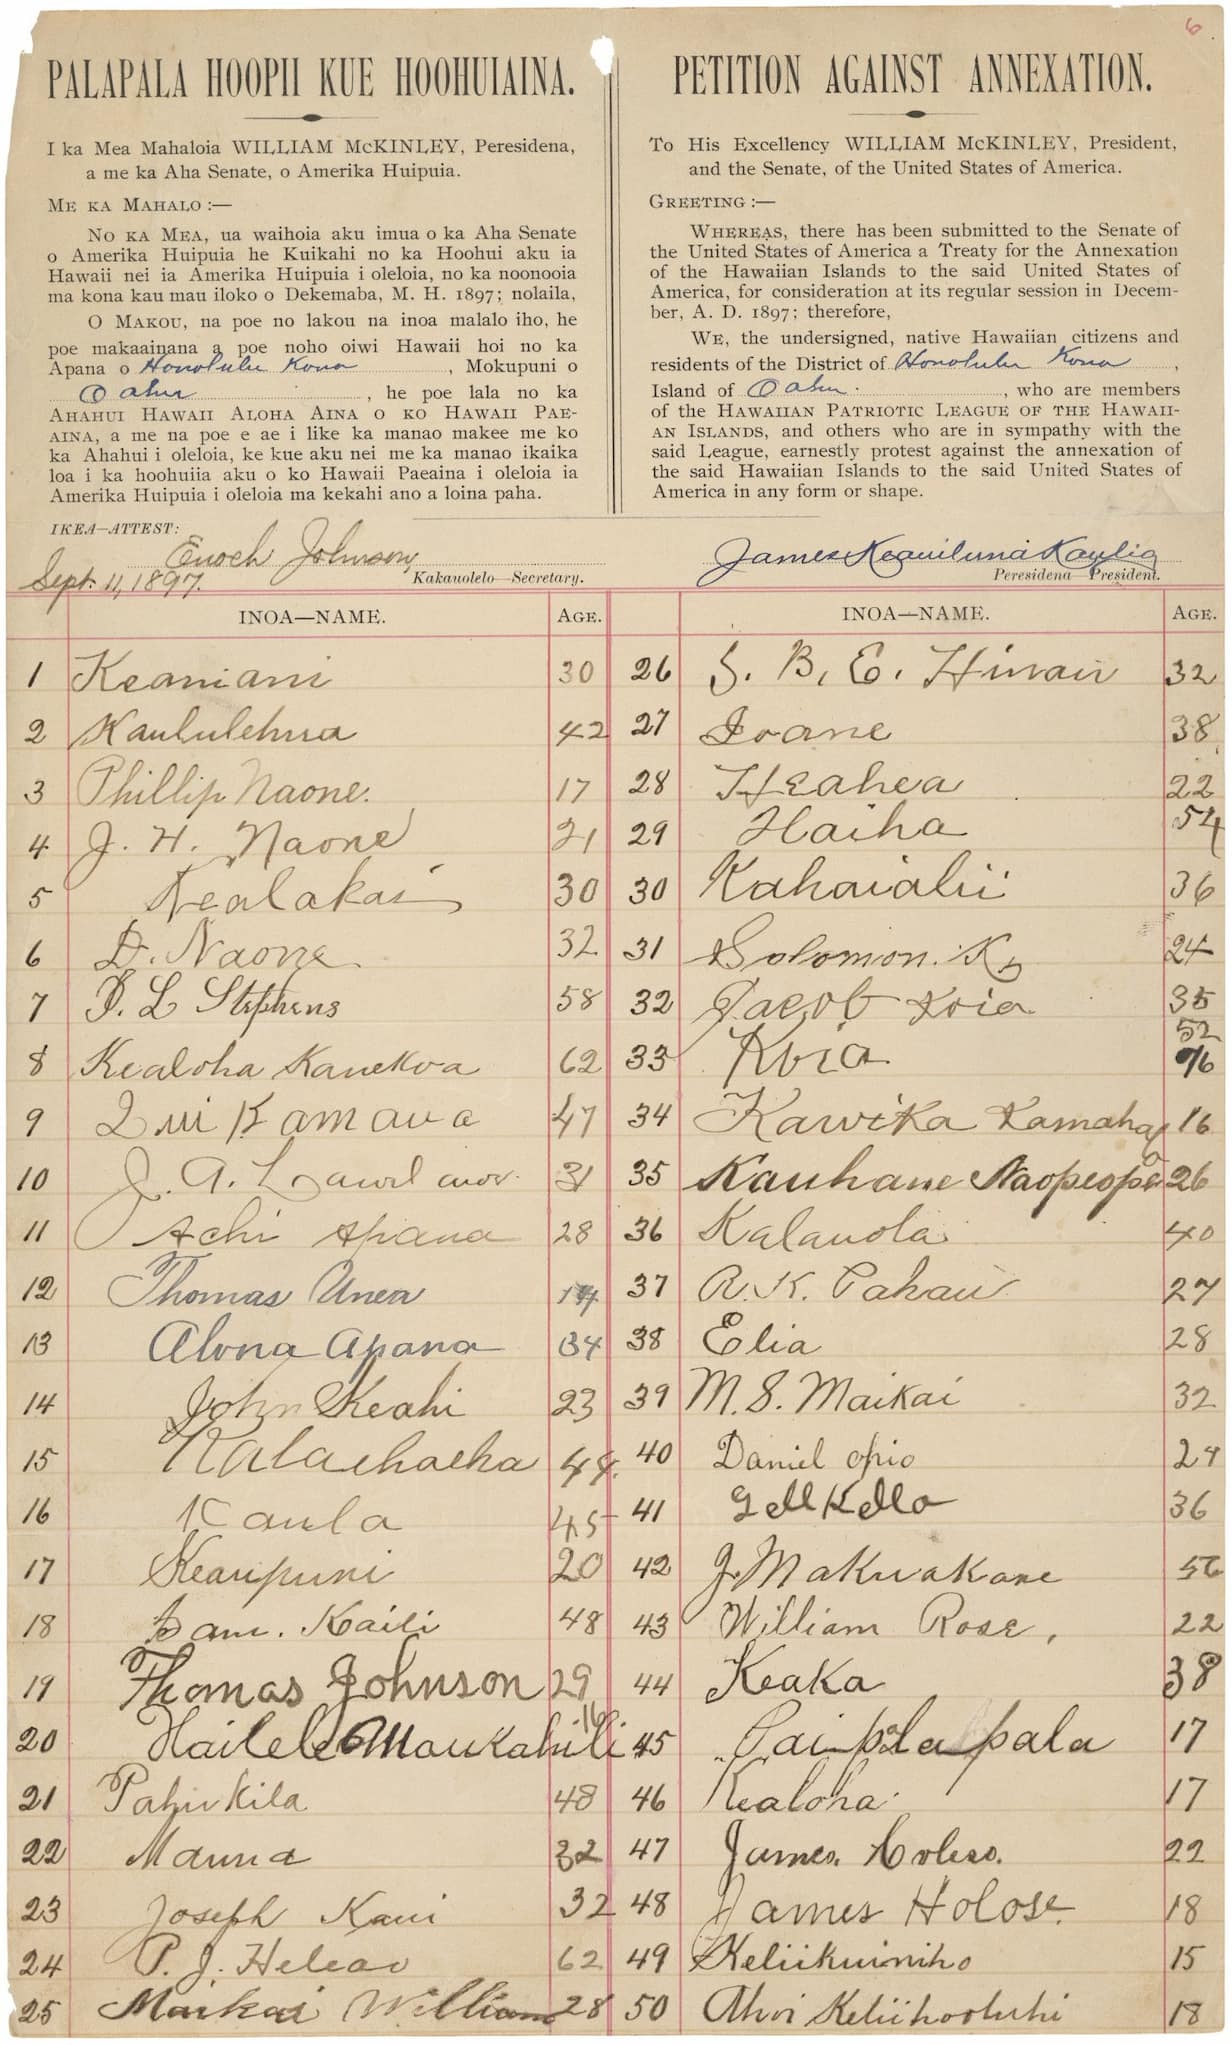 6
PALAPALA HOOPII KUE HOOHUIAINA.
I ka Mea Mahaloia WILLIAM McKINLEY, Peresidena,
a me ka Aha Senate, o Amerika Huipuia.
ME KA MAHALO :—
NO KA MEA, ua waihoia aku imua o ka Aha Senate
o Amerika Huipuia he Kuikahi no ka Hoohui aku ia
Hawaii nei ia Amerika Huipuia i oleloia, no ka noonooia
ma kona kau mau iloko o Dekemaba, M. H. 1897; nolaila,
O MAKOU, na poe no lakou na inoa malalo iho, he
poe makaainana a poe noho oiwi Hawaii hoi no ka
Apana o Honolulu Kona, Mokupuni o
Oahu, he poe lala no ka
AHAHUI HAWAII ALOHA AINA O KO HAWAII PAE-
AINA, a me na poe e ae i like ka manao makee me ko
ka Ahahui i oleloia, ke kue aku nei me ka manao ikaika
loa i ka hoohuiia aku o ko Hawaii Paeaina i oleloia ia
Amerika Huipuia i oleloia ma kekahi ano a loina paha.
IKEA—ATTEST:
Enoch Johnson,
Sept. 11, 1897.
Kakauolelo—Secretary.
PETITION AGAINST ANNEXATION.
To His Excellency WILLIAM McKINLEY, President,
and the Senate, of the United States of America.
GREETING :—
WHEREAS, there has been submitted to the Senate of
the United States of America a Treaty for the Annexation
of the Hawaiian Islands to the said United States of
America, for consideration at its regular session in Decem-
ber, A. D. 1897; therefore,
WE, the undersigned, native Hawaiian citizens and
residents of the District of Honolulu Kona,
Island of Oahu., who are members
of the HAWAIIAN PATRIOTIC LEAGUE OF THE HAWAII-
AN ISLANDS, and others who are in sympathy with the
said League, earnestly protest against the annexation of
the said Hawaiian Islands to the said United States of
America in any form or shape.
James Keauiluna Kaulia
Peresidena—President.
INOA—NAME. AGE.
1 Keaniani 30
2 Kaululehua 42
3 Phillip Naone. 17
4 J. H. Naone 21
5 Kealakai 30
6 D. Naone 32
7 L Stephens 58
8 Kealoha Kanekoa 62
9 Lui Kamaua 47
10 J. A. 31
11 Achi Apana 28
12 Thomas Unea
13 Alona Apana 34
14 John Keahi 23
15 Kalaehaeha 44
16 Kaula 45
17 Keaupuni 20
18 Sam. Kaili 48
19 Thomas Johnson 29
20 Hailele Maukahili 16
21 Pahukila 48
22 Mauna 32
23 Joseph Kaui 32
24 P. J. Heleao 62
25 Maikai William 28
INOA—NAME. AGE.
26 S. B. E. 32
27 Ioane 38
28 Heahea 22
29 Haiha 54
30 Kahaialii 36
31 Solomon. K. 24
32 Jacob Koia 35
33 Koia 52
34 Kawika Kamaha 16
35 Kauhane Naopeope 26
36 Kalauola 40
37 R. K. Pahau 27
38 Elia 28
39 M. S. Maikai 32
40 Daniel opio 24
41 36
42 J. Makuakane 56
43 William Rose, 22
44 Keaka 38
45 Paipalapala 17
46 Kealoha 17
47 James. 22
48 James Holose. 18
49 Keliikuiniho 15
50 Ahoi Keliihooluhi 18